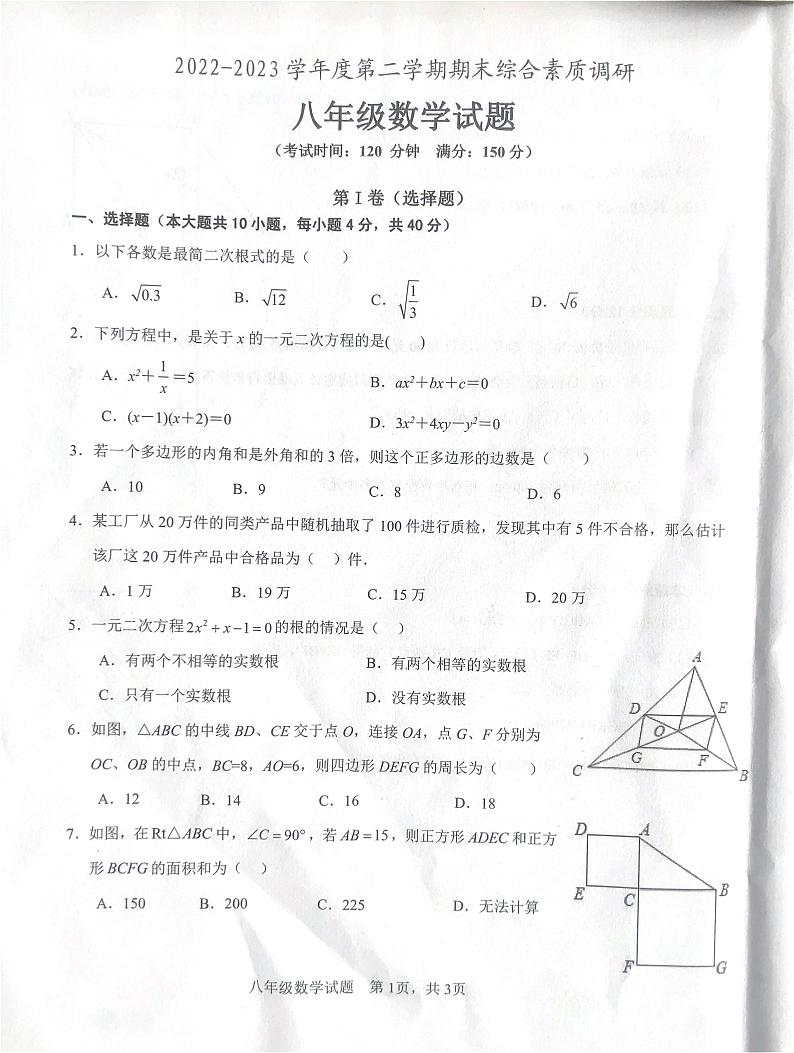 2022-2023 学年度第二学期期末综合素质调研
八年级数学试题
（考试时间：120 分钟 满分：150 分）
第 I 卷（选择题）
一、选择题（本大题共 10 小题，每小题 4 分，共 40 分）
1．以下各数是最简二次根式的是（ ）
A．√0.3 B．√12 C．√(1/3) D．√6
2．下列方程中，是关于 x 的一元二次方程的是( )
A．x²＋1/x＝5 B．ax²＋bx＋c＝0
C．(x－1)(x＋2)＝0 D．3x²＋4xy－y²＝0
3．若一个多边形的内角和是外角和的 3 倍，则这个正多边形的边数是（ ）
A．10 B．9 C．8 D．6
4．某工厂从 20 万件的同类产品中随机抽取了 100 件进行质检，发现其中有 5 件不合格，那么估计
该厂这 20 万件产品中合格品为（ ）件．
A．1 万 B．19 万 C．15 万 D．20 万
5．一元二次方程 2x²＋x－1＝0 的根的情况是（ ）
A．有两个不相等的实数根 B．有两个相等的实数根
C．只有一个实数根 D．没有实数根
6．如图，△ABC 的中线 BD、CE 交于点 O，连接 OA，点 G、F 分别为
OC、OB 的中点，BC=8，AO=6，则四边形 DEFG 的周长为（ ）
A．12 B．14 C．16 D．18
A
D E
O
G F
C B
7．如图，在 Rt△ABC 中，∠C＝90°，若 AB＝15，则正方形 ADEC 和正方
形 BCFG 的面积和为（ ）
A．150 B．200 C．225 D．无法计算
D A
E C B
F G
八年级数学试题 第 1页，共 3页